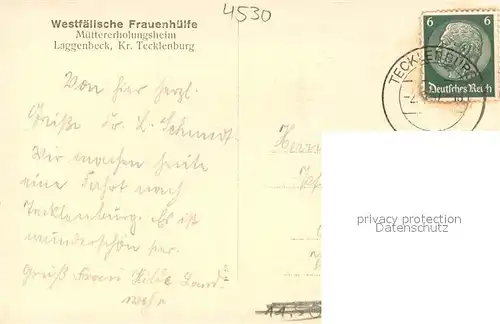 4530
Westfälische Frauenhülfe
Müttererholungsheim
Laggenbeck, Kr. Tecklenburg
6 6
Deutsches Reich
TECKLENBURG
Von hier herzl.
Grüße Fr. L. Schmidt.
Wir machen heute
eine Fahrt nach
Tecklenburg. Es ist
wunderschön hier.
Gruß Frau Hilde Land-
wehr
Herrn
privacy protection
Datenschutz